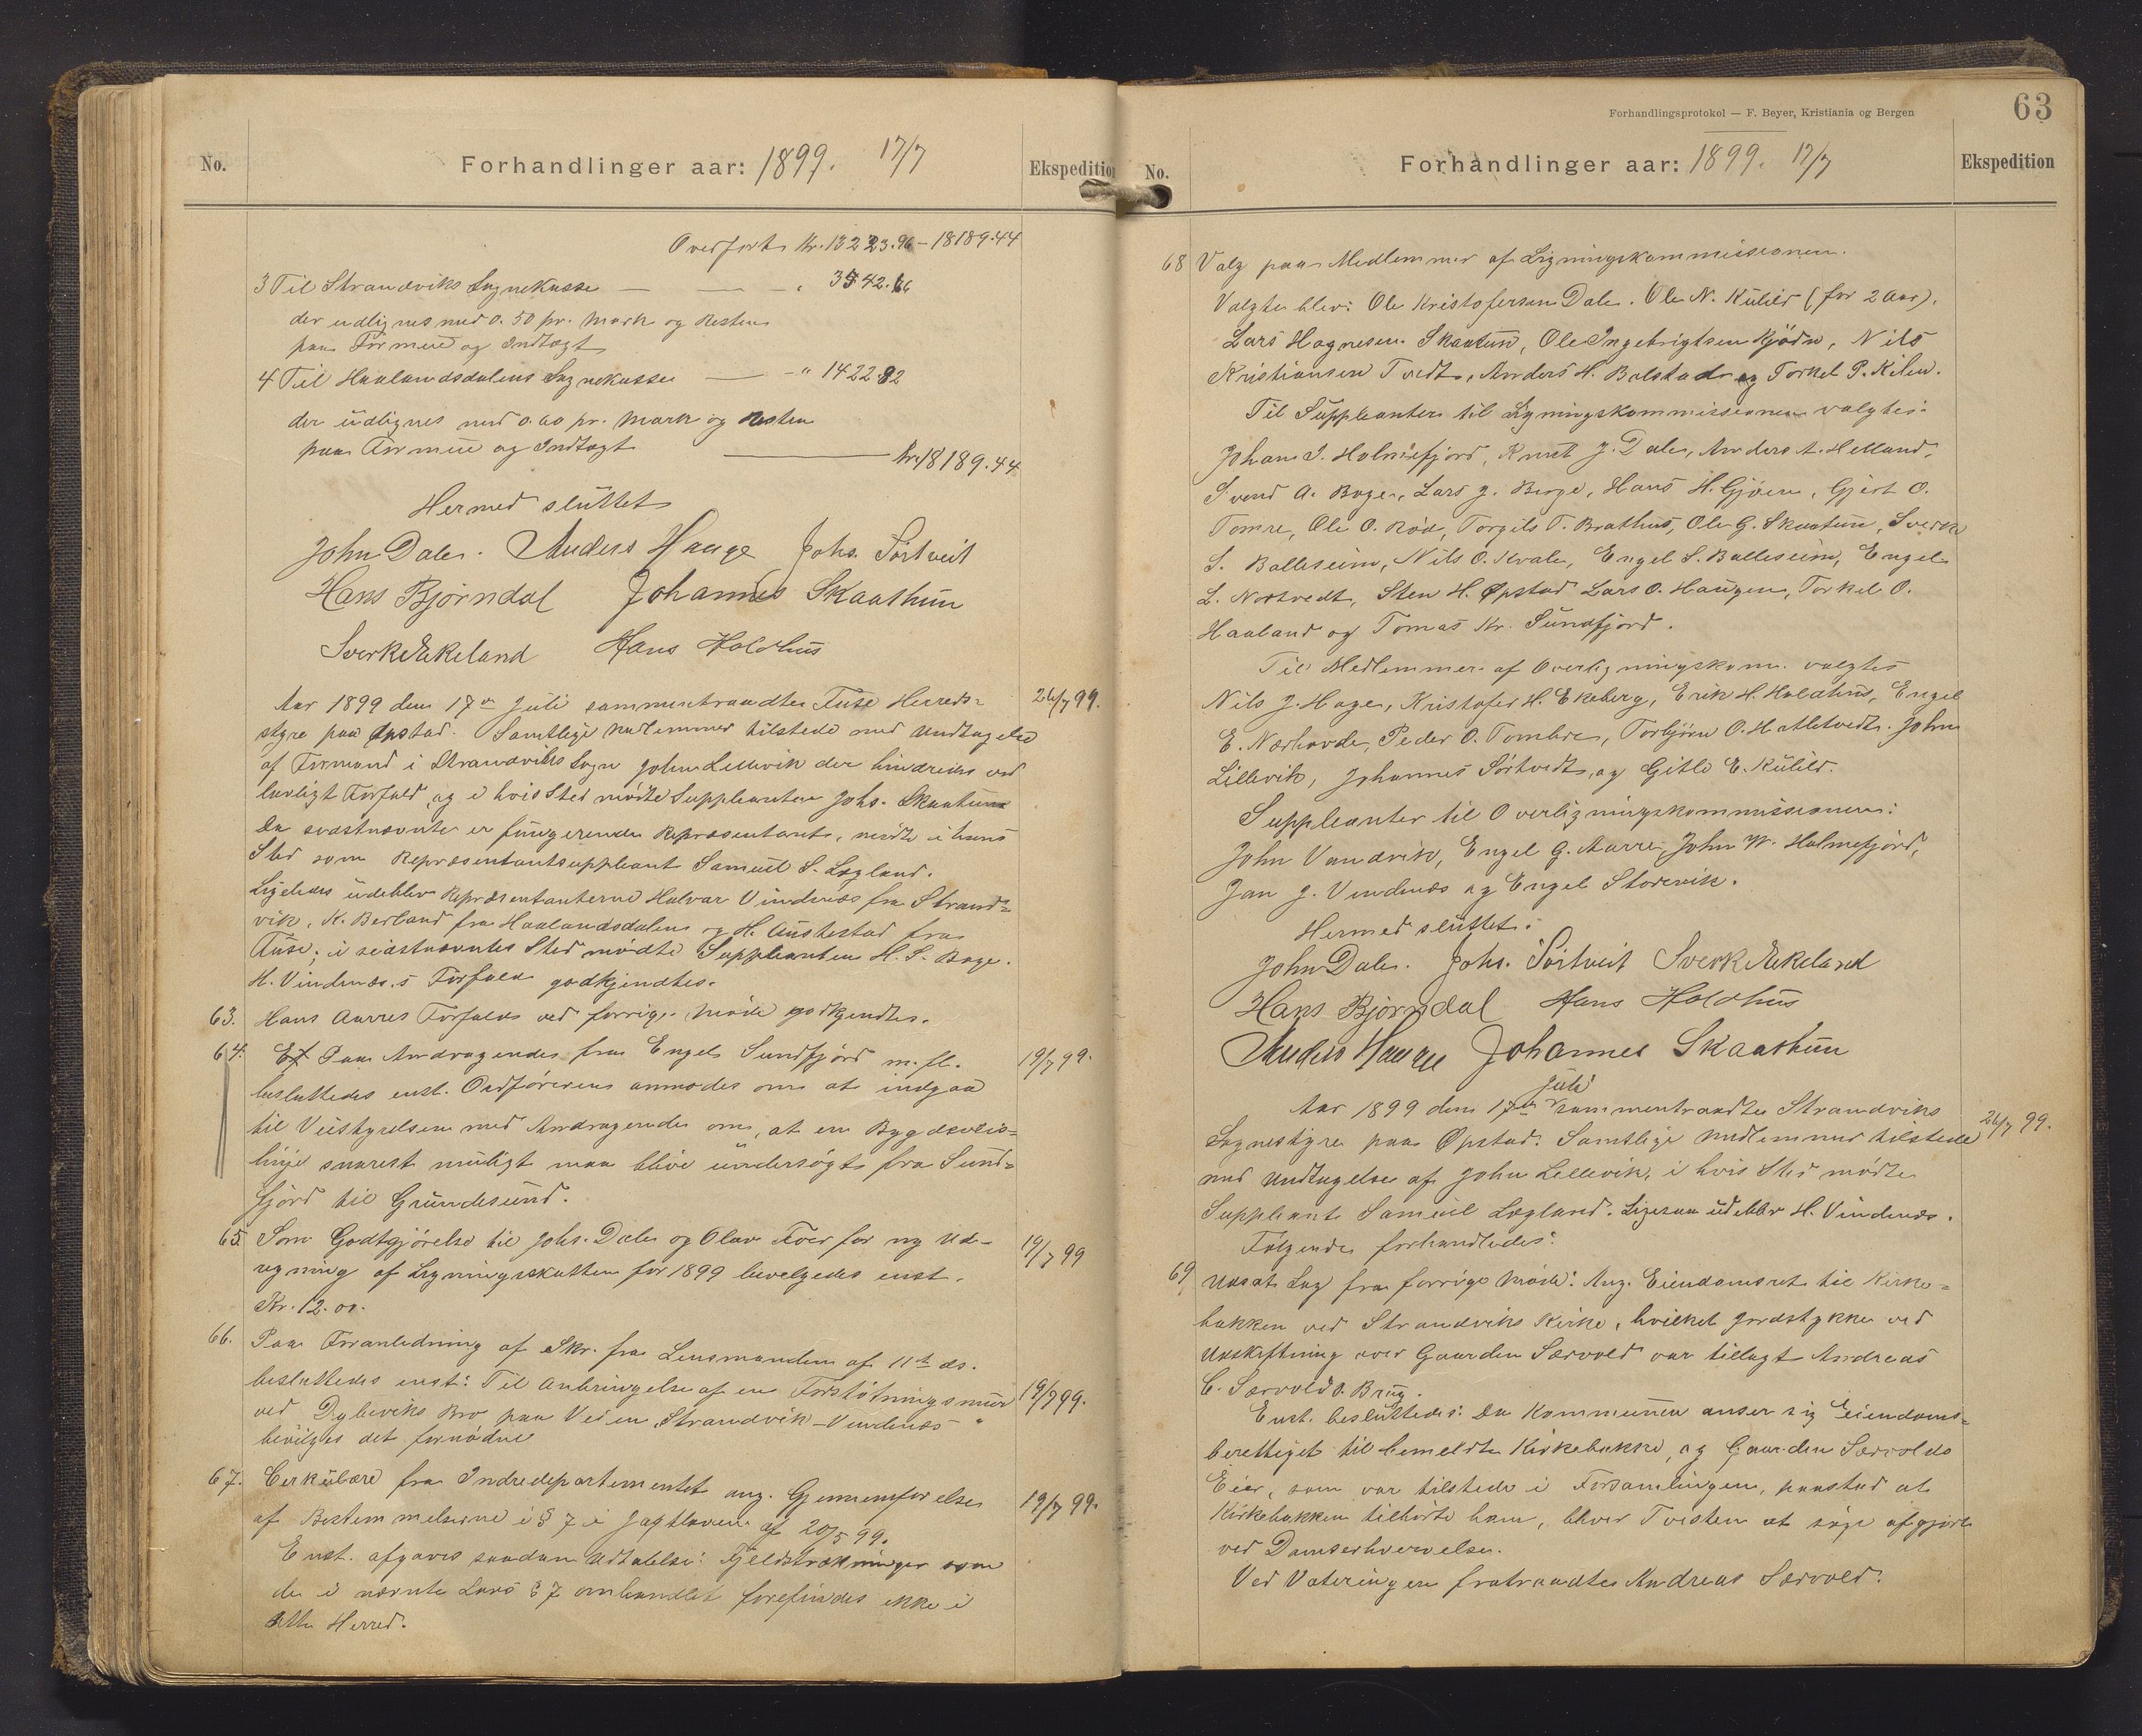 No.
Forhandlinger aar: 1899. 17/7
Ekspedition
Overført Kr. 13223.96 – 18189.44
3 Til Strandviks Sognekasse — — - " 3542.66
der udlignes med 0.50 pr. Mark og Resten
paa Formue og Indtægt
4 Til Haalandsdalens Sognekasse — - " 1422.82
der udlignes med 0.60 pr. Mark og Resten
paa Formue og Indtægt — Kr. 18189.44
Hermed sluttet
John Dale. Anders Hauge Johs. Sørtveit
Hans Bjørndal Johannes Skaathun
Sverk Eikeland Hans Holdhus
Aar 1899 den 17de Juli sammentraadte Fuse Herreds=
styre paa Øpstad. Samtlige Medlemmer tilstede med Undtagelse
af Formand i Strandviks Sogn John Lillevik der hindredes ved
lovligt Forfald, og i hvis Sted mødte Suppleanten Johs. Skaatun
Da sidstnævnte er fungerende Repræsentant, mødte i hans
Sted som Repræsentantsuppleant Samuel S. Løgland.
Ligeledes udeblev Repræsentanterne Halvar Vindenæs fra Strand=
vik, K. Berland fra Haalandsdalen og H. Austestad fra
Fuse; i sidstnævntes Sted mødte Suppleanten H. S. Bøge.
H. Vindenæs,s Forfald godkjendtes.
26/7 99.
63. Hans Aarres Forfald ved forrige Møde godkjendtes.
64. Paa Andragende fra Engel Sundfjord m. fl.
besluttedes enst. Ordføreren anmodes om at indgaa
til Veistyrelsen med Andragende om, at en Bygdeveis=
linje snarest muligt maa blive undersøgt fra Sund=
fjord til Grundesund.
19/7 99.
65. Som Godtgjørelse til Johs. Dale og Olav Foer for ny Ud-
regning af Ligningsskatten for 1899 bevilgedes enst.
Kr. 12.00.
19/7 99
66. Paa Foranledning af Skr. fra Lensmanden af 11te ds.
besluttedes enst: Til Anbringelse af en Forstøtningsmur
ved Dybeviks Bro paa Veien "Strandvik–Vindenæs"
bevilges det fornødne
19/7 99.
67. Cirkulære fra Indredepartementet ang. Gjennemførelse
af Bestemmelserne i § 7 i Jagtloven af 20/5 99.
Enst. afgaves saadan Udtalelse: Fjeldstrækninger som
de i nævnte Lovs § 7 omhandlet forefindes ikke i
dette Herred.
19/7 99.
Forhandlingsprotokol — F. Beyer, Kristiania og Bergen
63
No.
Forhandlinger aar: 1899. 17/7
Ekspedition
68 Valg paa Medlemmer af Ligningskommissionen.
Valgte blev: Ole Kristofersen Dale. Ole N. Kulild (for 2 Aar).
Lars Hagnesen Skaatun, Ole Ingebrigtsen Kjødn, Nils
Kristiansen Tvedt, Anders H. Bolstad og Torkel P. Kilen.
Til Suppleanter til Ligningskommissionen valgtes:
Johan J. Holmefjord, Knut J. Dale, Anders A. Helland,
Svend A. Bøge, Lars J. Berge, Hans H. Gjøen, Gjert O.
Tomre, Ole O. Rød, Torgils T. Brathus, Ole G. Skaatun, Sverk
S. Balleseim, Nils O. Kvale, Engel S. Balleseim, Engel
L. Nortvedt, Sten H. Øpstad Lars O. Haugen, Torkel O.
Haaland og Tomas Kr. Sundfjord.
Til Medlemmer af Overligningskom. valgtes
Nils J. Hage, Kristofer H. Ekeberg, Erik H. Holdhus, Engel
E. Nærhovde, Peder O. Tombre, Torbjørn O. Hatletvedt. John
Lillevik, Johannes Sørtvedt, og Gitle E. Kulild.
Suppleanter til Overligningskommissionen:
John Vandvik, Engel G. Aarre, John W. Holmefjord,
Jan J. Vindenæs og Engel Storevik.
Hermed sluttet:
John Dale. Johs. Sørtveit Sverk Eikeland
Hans Bjørndal Hans Holdhus
Anders Hauge Johannes Skaathun
Aar 1899 den 17de Juli sammentraadte Strandviks
Sognestyre paa Øpstad. Samtlige Medlemmer tilstede
med Undtagelse af John Lillevik, i hvis Sted mødte
Suppleant Samuel Løgland. Ligesaa udeblev H. Vindenæs.
Følgende forhandledes:
26/7 99.
69 Udsat Sag fra forrige Møde: Ang. Eiendomsret til Kirke=
bakken ved Strandviks Kirke, hvilket Jordstykke ved
Udskiftning over Gaarden Særvold var tillagt Andreas
C. Særvolds Brug.
Enst. besluttedes: Da Kommunen anser sig eiendoms=
berettiget til bemeldte Kirkebakke, og Gaarden Særvolds
Eier, som var tilstede i Forsamlingen, paastod at
Kirkebakken tilhørte ham, bliver Tvisten at søge afgjort
ved Domserhvervelse.
Ved Voteringen fratraadte Andreas Særvold.